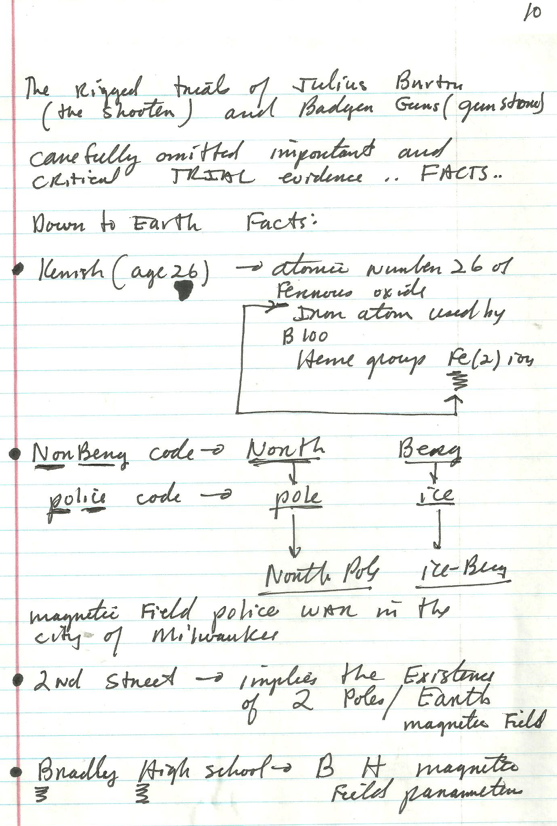 10
The Rigged trial of Julius Burton
(the shooter) and Badger Guns (gun store)
carefully omitted important and
critical TRIAL evidence .. FACTS..
Down to Earth Facts:
• Kunish (age 26) → atomic number 26 of
Ferrous oxide
Iron atom used by
Blood
Heme group Fe(2) ion
• NorBerg code → North Berg
police code → pole ice
North Pole ice-Berg
magnetic Field police WAR in the
city of Milwaukee
• 2nd Street → implies the Existence
of 2 Poles / Earth
magnetic Field
• Bradley High school → B H magnetic
Field parameters